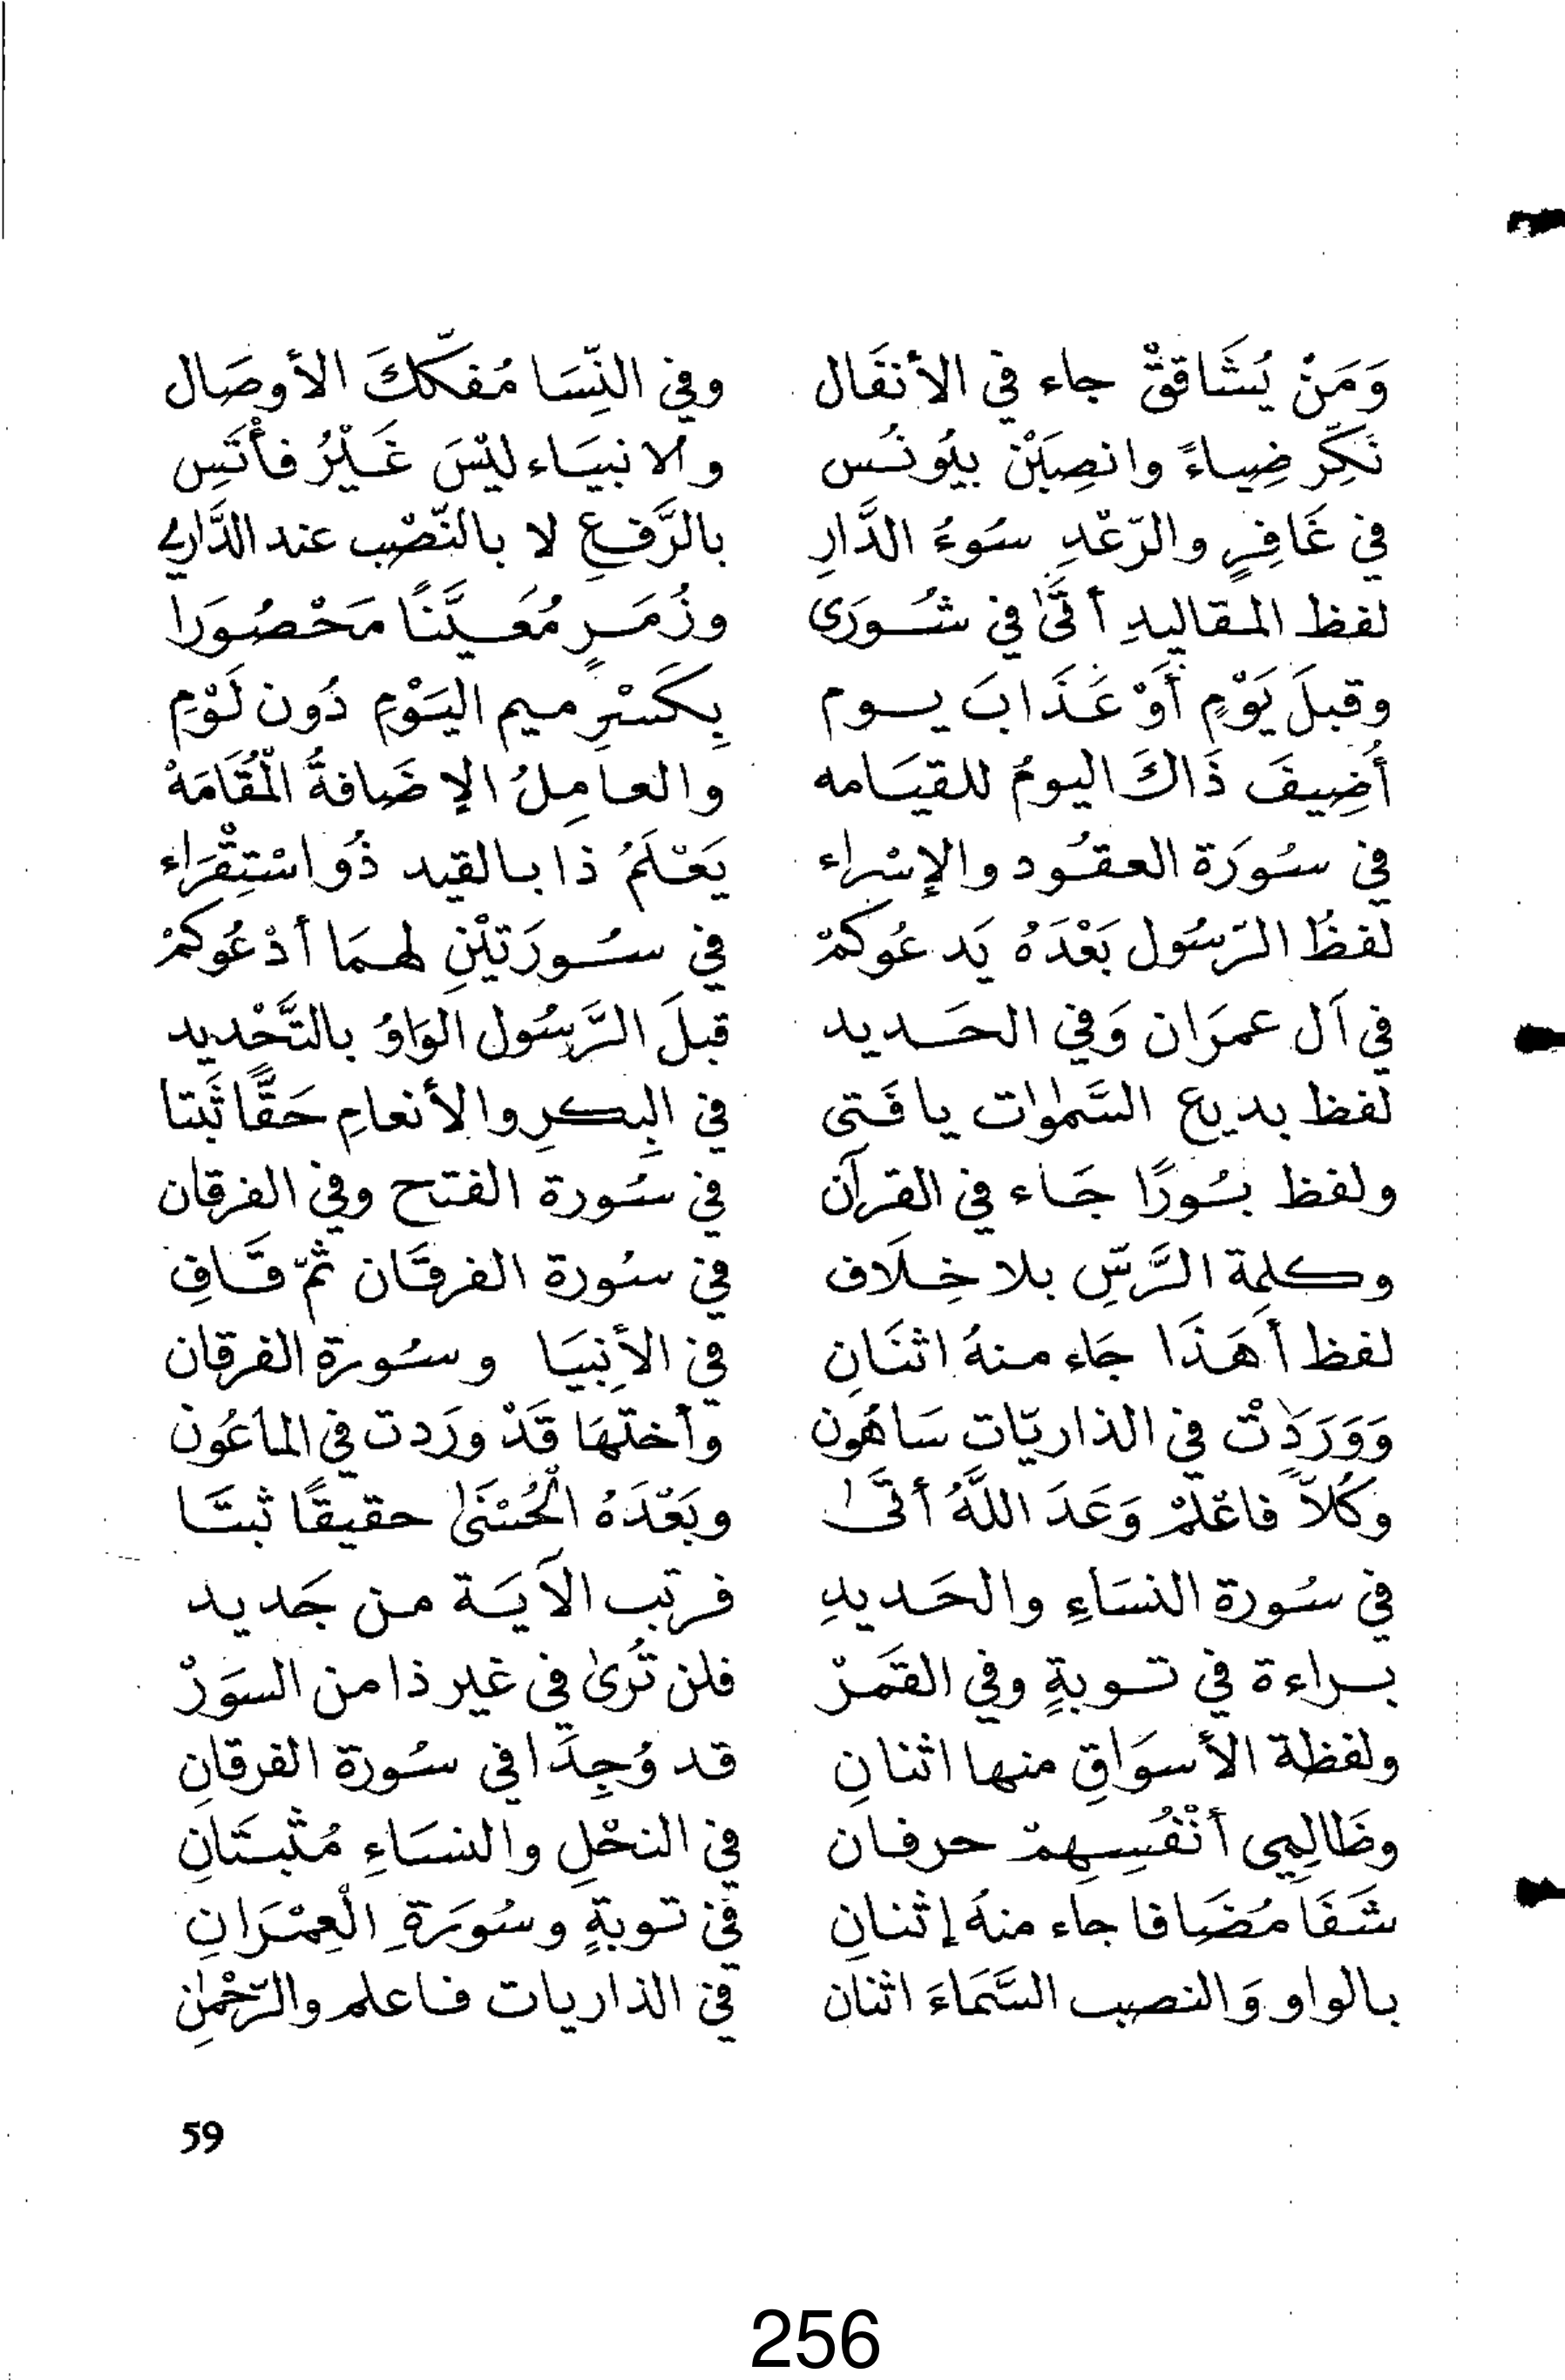 وَمَنْ يُشَاقِقْ جاء في الأنفَال وفي النِّسَا مُفكّكَ الأوصَال
نَكِّر ضِياءً وانصِبَنْ بيُونُس والانبيَاء ليْسَ غَيْرُ فأْتَسِ
في غَافِرٍ والرّعْدِ سُوءُ الدَّارِ بالرَّفعِ لا بالنّصْبِ عند الدَّارِي
لفظ المقاليدِ أتَىٰ في شُورَى وزُمَرٍ مُعَيَّنًا مَحْصُورَا
وقبلَ يَوْمٍ أَوْ عَذَابَ يوم بِكَسْرِ ميم اليَوْمِ دُون لَوْمِ
أُضِيفَ ذَاكَ اليومُ للقيَامه والعامِلُ الإضَافةُ الْمُقَامَهْ
في سُورَة العقُود والإسْراء يَعْلَمُ ذا بالقيد ذُو اسْتِقْرَاء
لفظُ الرّسُول بَعْدَهُ يَدعُوكمْ في سُورَتيْنِ لهمَا أدْعُوكمْ
في آل عمرَان وَفي الحديد قبلَ الرَّسُول الوَاوُ بالتَّحْديد
لفظ بديع السَّمٰوٰات يا فَتى في البِكرِ والأنعامِ حَقًّا ثَبتا
ولفظ بُورًا جَاء في القرآن في سُورة الفتح وفي الفرقان
وكلِمة الرَّسِّ بلا خِلَاف في سُورة الفرقَان ثمّ قَافِ
لفظ أَهَذَا جَاء منهُ اثنَانِ في الأنبِيَا وسُورة الفرقان
وَوَرَدَتْ في الذاريّات سَاهُون وأختهَا قَدْ ورَدت في الماعُون
وَكُلاًّ فاعْلمْ وَعَدَ اللَّهُ أتَىٰ وبَعْدَهُ الْحُسْنَىٰ حقيقًا ثبتَا
في سُورة النسَاءِ والحَديدِ فرتب الآيَة من جَديد
براءة في توبةٍ وفي القمَرْ فلن تُرىٰ في غير ذا من السوَرْ
ولفظة الأسوَاقِ منها اثنانِ قد وُجِدَا في سُورة الفرقانِ
وظَالِمِي أنْفُسِهِمْ حرفان في النحْلِ والنسَاءِ مُثبتَانِ
شَفَا مُضَافا جاء منهُ إثنانِ في توبةٍ وسُورَةِ الْعِمْرَانِ
بالواو وَالنصب السَّمَاءَ اثنان في الذاريات فاعلم والرّحْمٰنِ
59
256